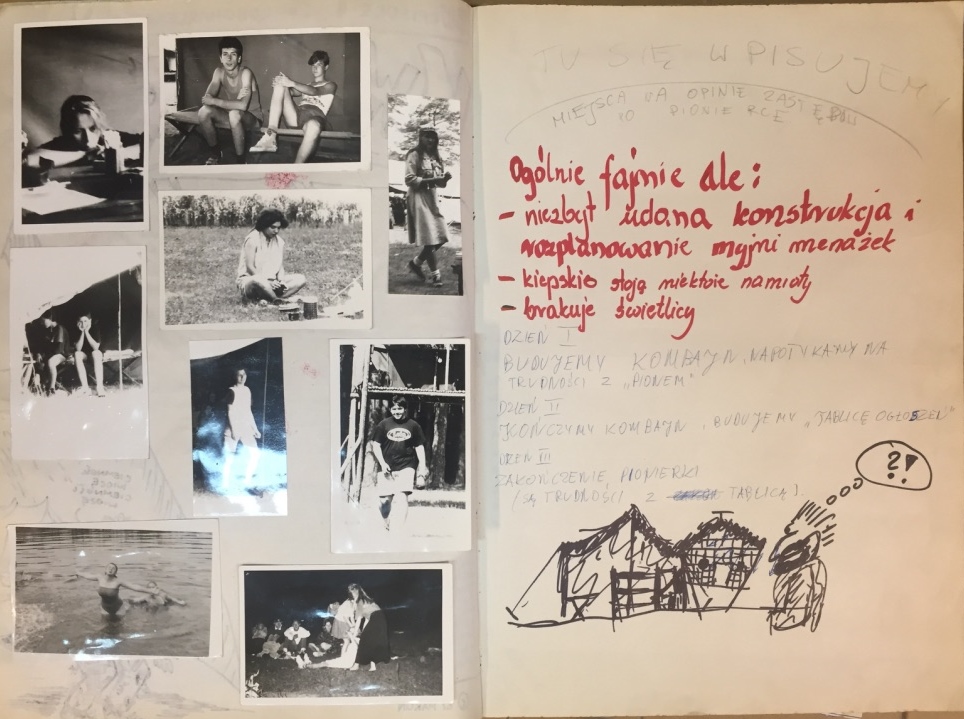 TU SIĘ WPISUJEMY
MIEJSCA NA OPINIE ZASTĘPU
O PIONIERCE
Ogólnie fajnie ale:
- niezbyt udana konstrukcja i
rozplanowanie myjni menażek
- kiepsko stoją niektóre namioty
- brakuje świetlicy
DZIEŃ I
BUDUJEMY KOMBAJN, NAPOTYKAMY NA
TRUDNOŚCI Z „PIONEM”
DZIEŃ II
KOŃCZYMY KOMBAJN, BUDUJEMY „TABLICĘ OGŁOSZEŃ”
DZIEŃ III
ZAKOŃCZENIE PIONIERKI
(SĄ TRUDNOŚCI Z TABLICĄ).
?!